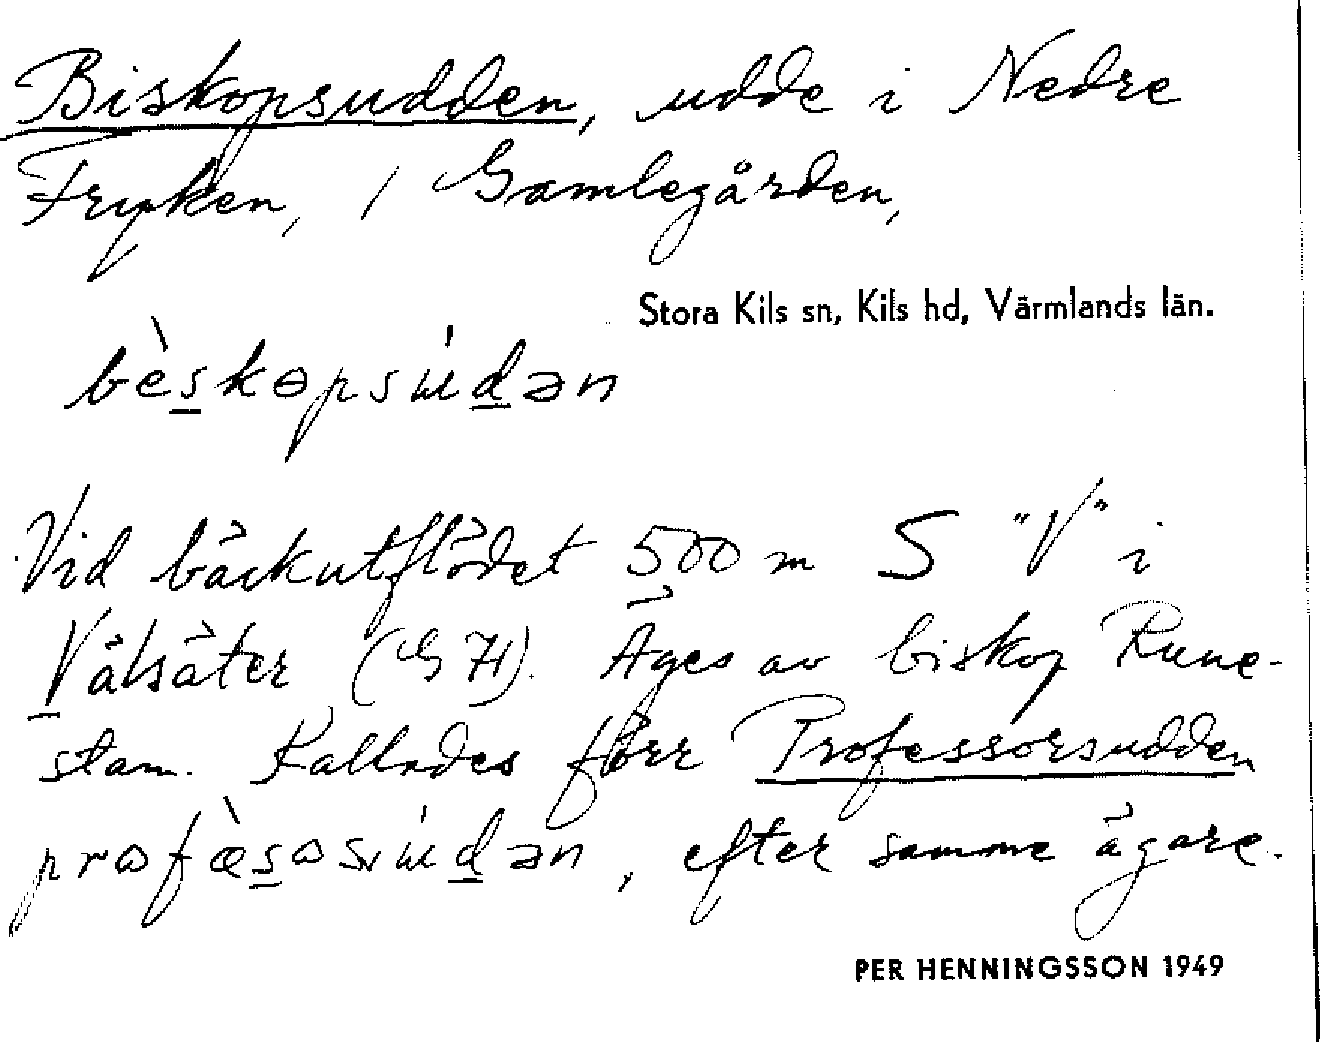 Biskopsudden, udde i Nedre
Fryken, / Gamlegården,
Stora Kils sn, Kils hd, Värmlands län.
bèskɵpsúdən
Vid bäckutflödet 500 m S "V" i
Vålsäter (G 71). Äges av biskop Rune-
stam. Kallades förr Professorsudden
, efter samme ägare.
PER HENNINGSSON 1949